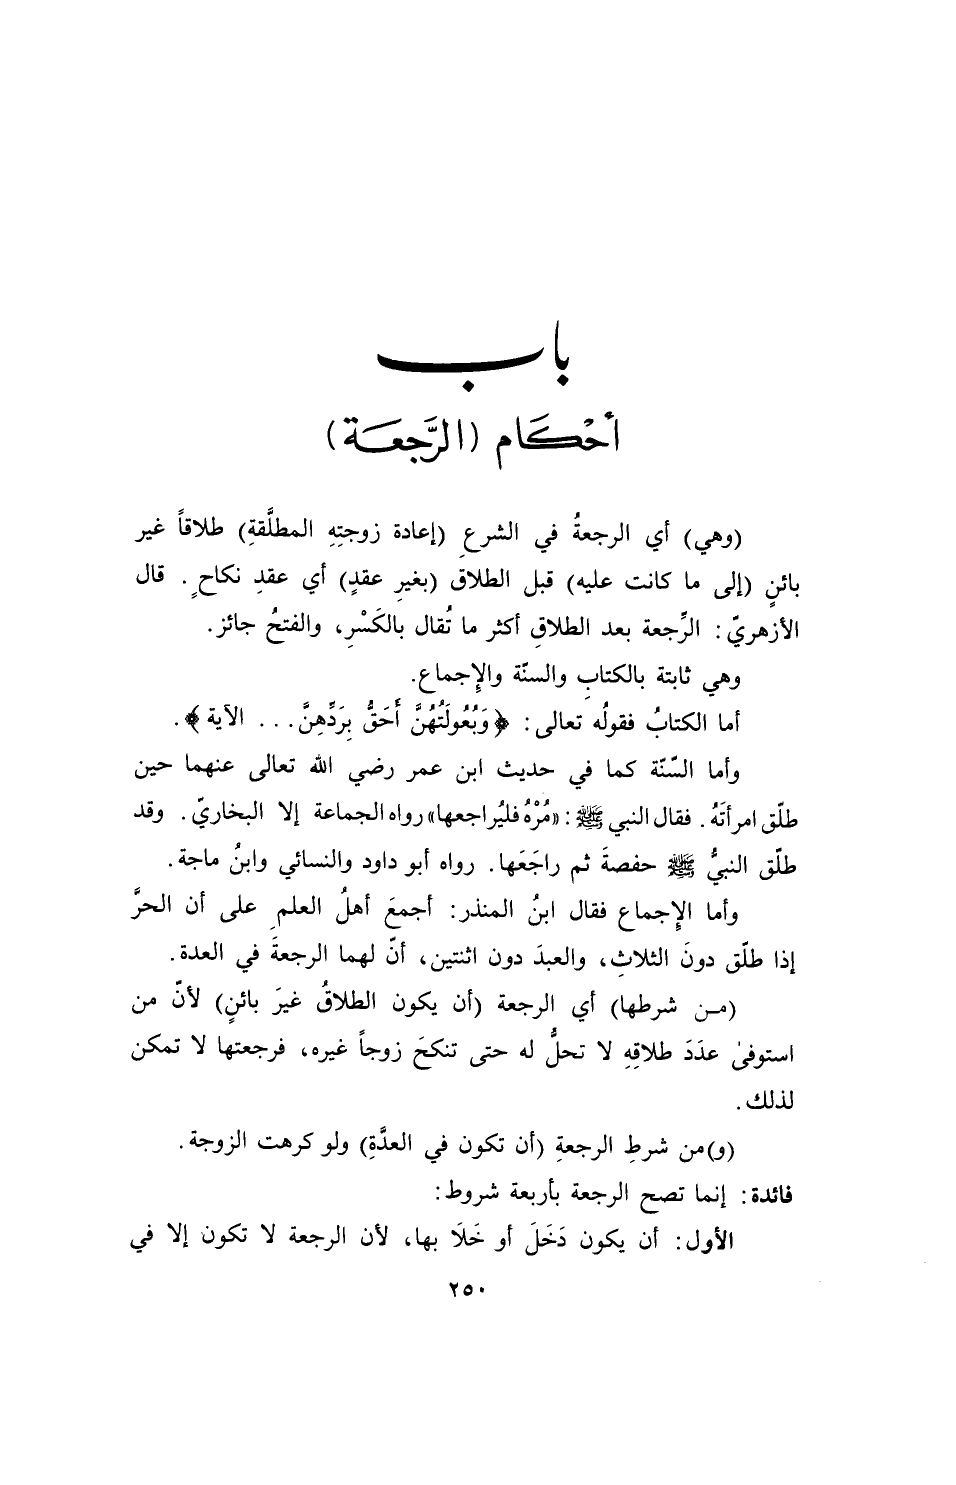 باب
أحْكَام (الرَّجعَة)
(وهي) أي الرجعةُ في الشرعِ (إعادة زوجتِهِ المطلَّقةِ) طلاقاً غير
بائنٍ (إلى ما كانت عليه) قبل الطلاق (بغيرِ عقدٍ) أي عقدِ نكاحٍ. قال
الأزهريّ: الرِّجعة بعد الطلاقِ أكثر ما تُقال بالكَسْرِ، والفتحُ جائز.
وهي ثابتة بالكتابِ والسنّة والإجماع.
أما الكتابُ فقولُه تعالى: ﴿وَبُعُولَتُهُنَّ أَحَقُّ بِرَدِّهِنَّ... الآية﴾.
وأما السّنّة كما في حديث ابن عمر رضي الله تعالى عنهما حين
طلّق امرأتَهُ. فقال النبي ﷺ: «مُرْهُ فليُراجعها» رواه الجماعة إلا البخاريّ. وقد
طلّق النبيُّ ﷺ حفصةَ ثم راجَعَها. رواه أبو داود والنسائي وابنُ ماجة.
وأما الإجماع فقال ابنُ المنذر: أجمعَ أهلُ العلمِ على أن الحرَّ
إذا طلّق دونَ الثلاثِ، والعبدَ دون اثنتين، أنّ لهما الرجعةَ في العدة.
(مـن شرطها) أي الرجعة (أن يكون الطلاقُ غيرَ بائنٍ) لأنّ من
استوفىٰ عدَدَ طلاقِهِ لا تحلُّ له حتى تنكحَ زوجاً غيره، فرجعتها لا تمكن
لذلك.
(و)من شرطِ الرجعةِ (أن تكون في العدَّةِ) ولو كرهت الزوجة.
فائدة: إنما تصح الرجعة بأربعة شروط:
الأول: أن يكون دَخَلَ أو خَلَا بها، لأن الرجعة لا تكون إلا في
٢٥٠